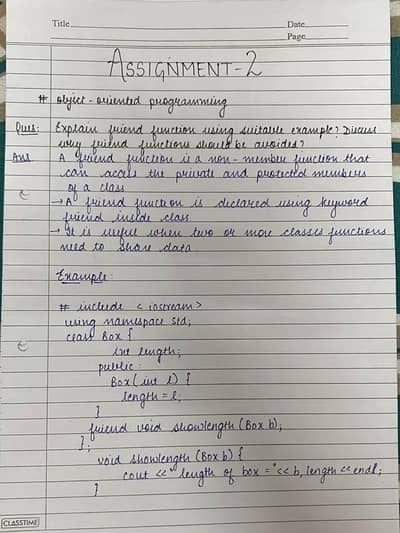 Title
Date
Page
ASSIGNMENT-2
# object-oriented programming
Ques: Explain friend function using suitable example? Discuss
why friend functions should be avoided?
Ans A friend function is a non-member function that
can access the private and protected members
of a class
→ A friend function is declared using keyword
friend inside class
→ It is useful when two or more classes functions
need to share data
Example:
# include < iostream>
using namespace std;
class Box {
int length;
public:
Box(int l) {
length = l;
}
friend void showlength (Box b);
};
void showlength (Box b) {
cout << " length of box = "<< b, length << endl;
}
CLASSTIME